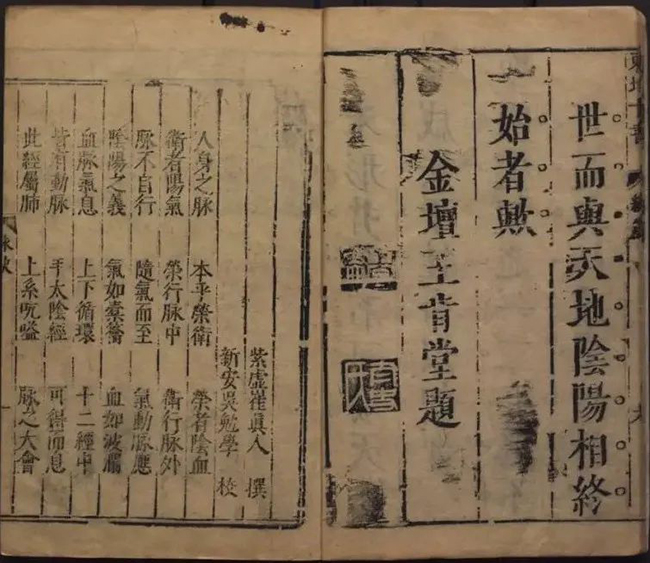 世而與天地陰陽相終
始者歟
金壇王肯堂題
紫虛崔眞人 撰
新安吳勉學 校
人身之脉 本乎榮衛 榮者陰血
衛者陽氣 榮行脉中 衛行脉外
脉不自行 隨氣而至 氣動脉應
陰陽之義 氣如橐籥 血如波瀾
血脉氣息 上下循環 十二經中
皆有動脉 手太陰經 可得而息
此經屬肺 上系吭嗌 脉之大會